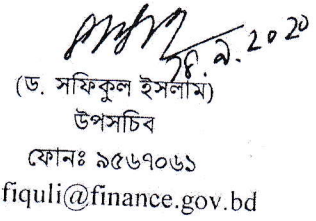 ১৪.৯.২০২০
(ড. সফিকুল ইসলাম)
উপসচিব
ফোনঃ ৯৫৬৭০৬১
fiquli@finance.gov.bd